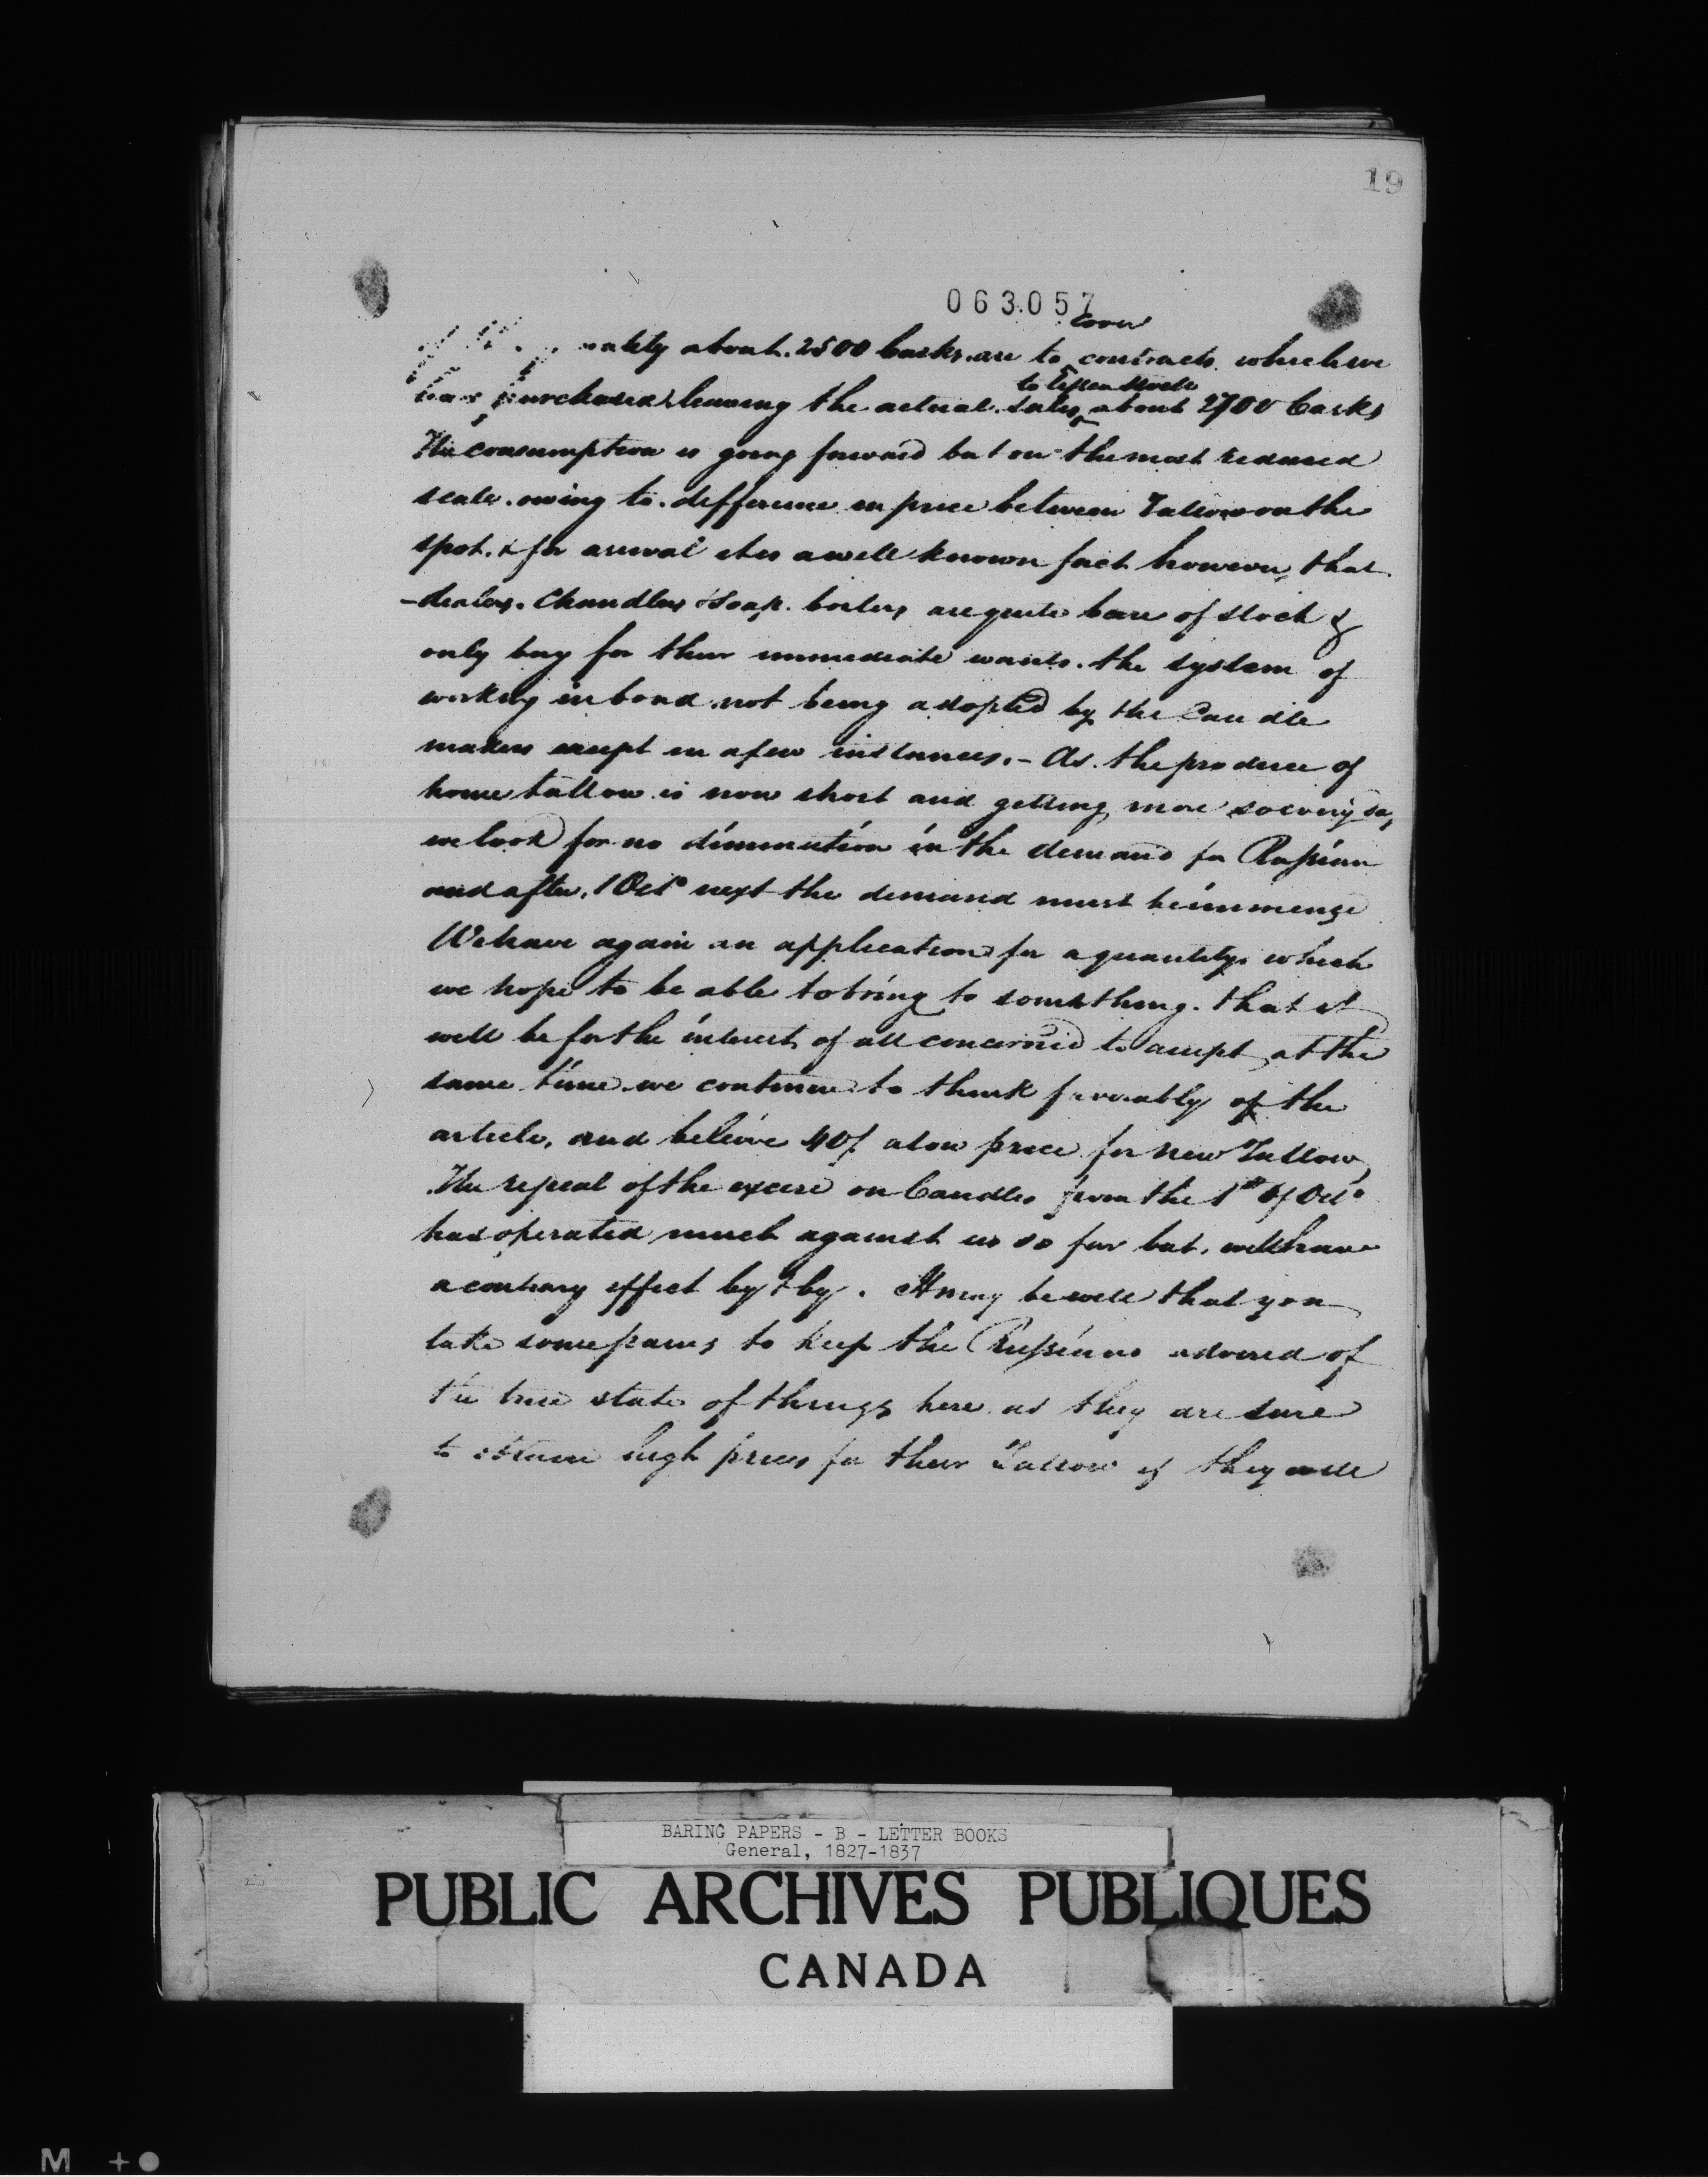 19
063057
cover
about 2500 Casks are to contracts which we
to lessen stock
have purchased leaving the actual sales about 2700 Casks
The consumption is going forward but on the most reduced
scale owing to difference in price between Tallow on the
spot & for arrival it is a well known fact however, that
-dealers. Chandlers & Soap boilers are quite bare of stock &
only buy for their immediate wants. the system of
working in bond not being adopted by the Candle
makers except in a few instances. - As the produce of
home tallow is now short and getting more so every day
we look for no diminution in the demand for Russian
and after 1 Octo next the demand must be immense
We have again an application for a quantity which
we hope to be able to bring to something. that it
will be for the interest of all concerned to accept, at the
same time we continue to think favorably of the
article, and believe 40/ a low price for new Tallow,
The repeal of the excise on Candles from the 1st of Octo
has operated much against us so far but, will have
a contrary effect by & by. It may be well that you
take some pains to keep the Russians advised of
the true state of things here as they are sure
to obtain high prices for their Tallow if they will
BARING PAPERS - B - LETTER BOOKS
General, 1827-1837
PUBLIC ARCHIVES PUBLIQUES
CANADA
M +